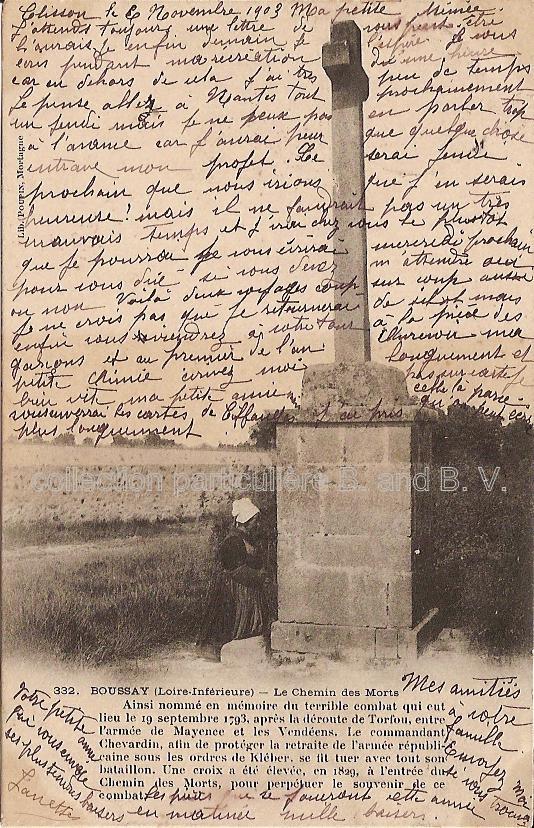 Clisson le 2 Novembre 1903 Ma petite Mimie
J'attends toujours une lettre de vous peut être
l'aurais je enfin demain. Je vous
écris pendant ma récréation d'une heure
car en dehors de cela j'ai très peu de temps
Je pense aller à Nantes tout prochainement
un jeudi mais je ne peux pas en parler trop
à l'avance car j'aurai peur que quelque chose
entrave mon projet. Le serai jeudi
prochain que nous irions que j'en serais
heureuse! mais il ne faudrait pas un très
mauvais temps et j'irai chez vous le plustôt
que je pourrai je vous écrirai mercredi prochain
pour vous dire si vous devez m'attendre
ou non Voilà deux voyages coup sur coup aussi
Je ne crois pas que je retournerai de sitôt mais
enfin vous viendrez à votre tour à la place des
garçons et au premier de l'an
petite Mimie écrivez moi longuement et
bien vite ma petite amie pas sur carte
cette là parce
plus longuement
(Lib. Poupin, Mortagne
collection particulière B. and B. V.
332. BOUSSAY (Loire-Inférieure) — Le Chemin des Morts
Ainsi nommé en mémoire du terrible combat qui eut
lieu le 19 septembre 1793, après la déroute de Torfou, entre
l'armée de Mayence et les Vendéens. Le commandant
Chevardin, afin de protéger la retraite de l'armée républi-
caine sous les ordres de Kléber, se fit tuer avec tout son
bataillon. Une croix a été élevée, en 1829, à l'entrée du
Chemin des Morts, pour perpétuer le souvenir de ce
combat.
Votre petite amie
que vous envoie
ses plus doux baisers
Mes amitiés
à votre
famille
Envoyez moi
en matinée mille baisers